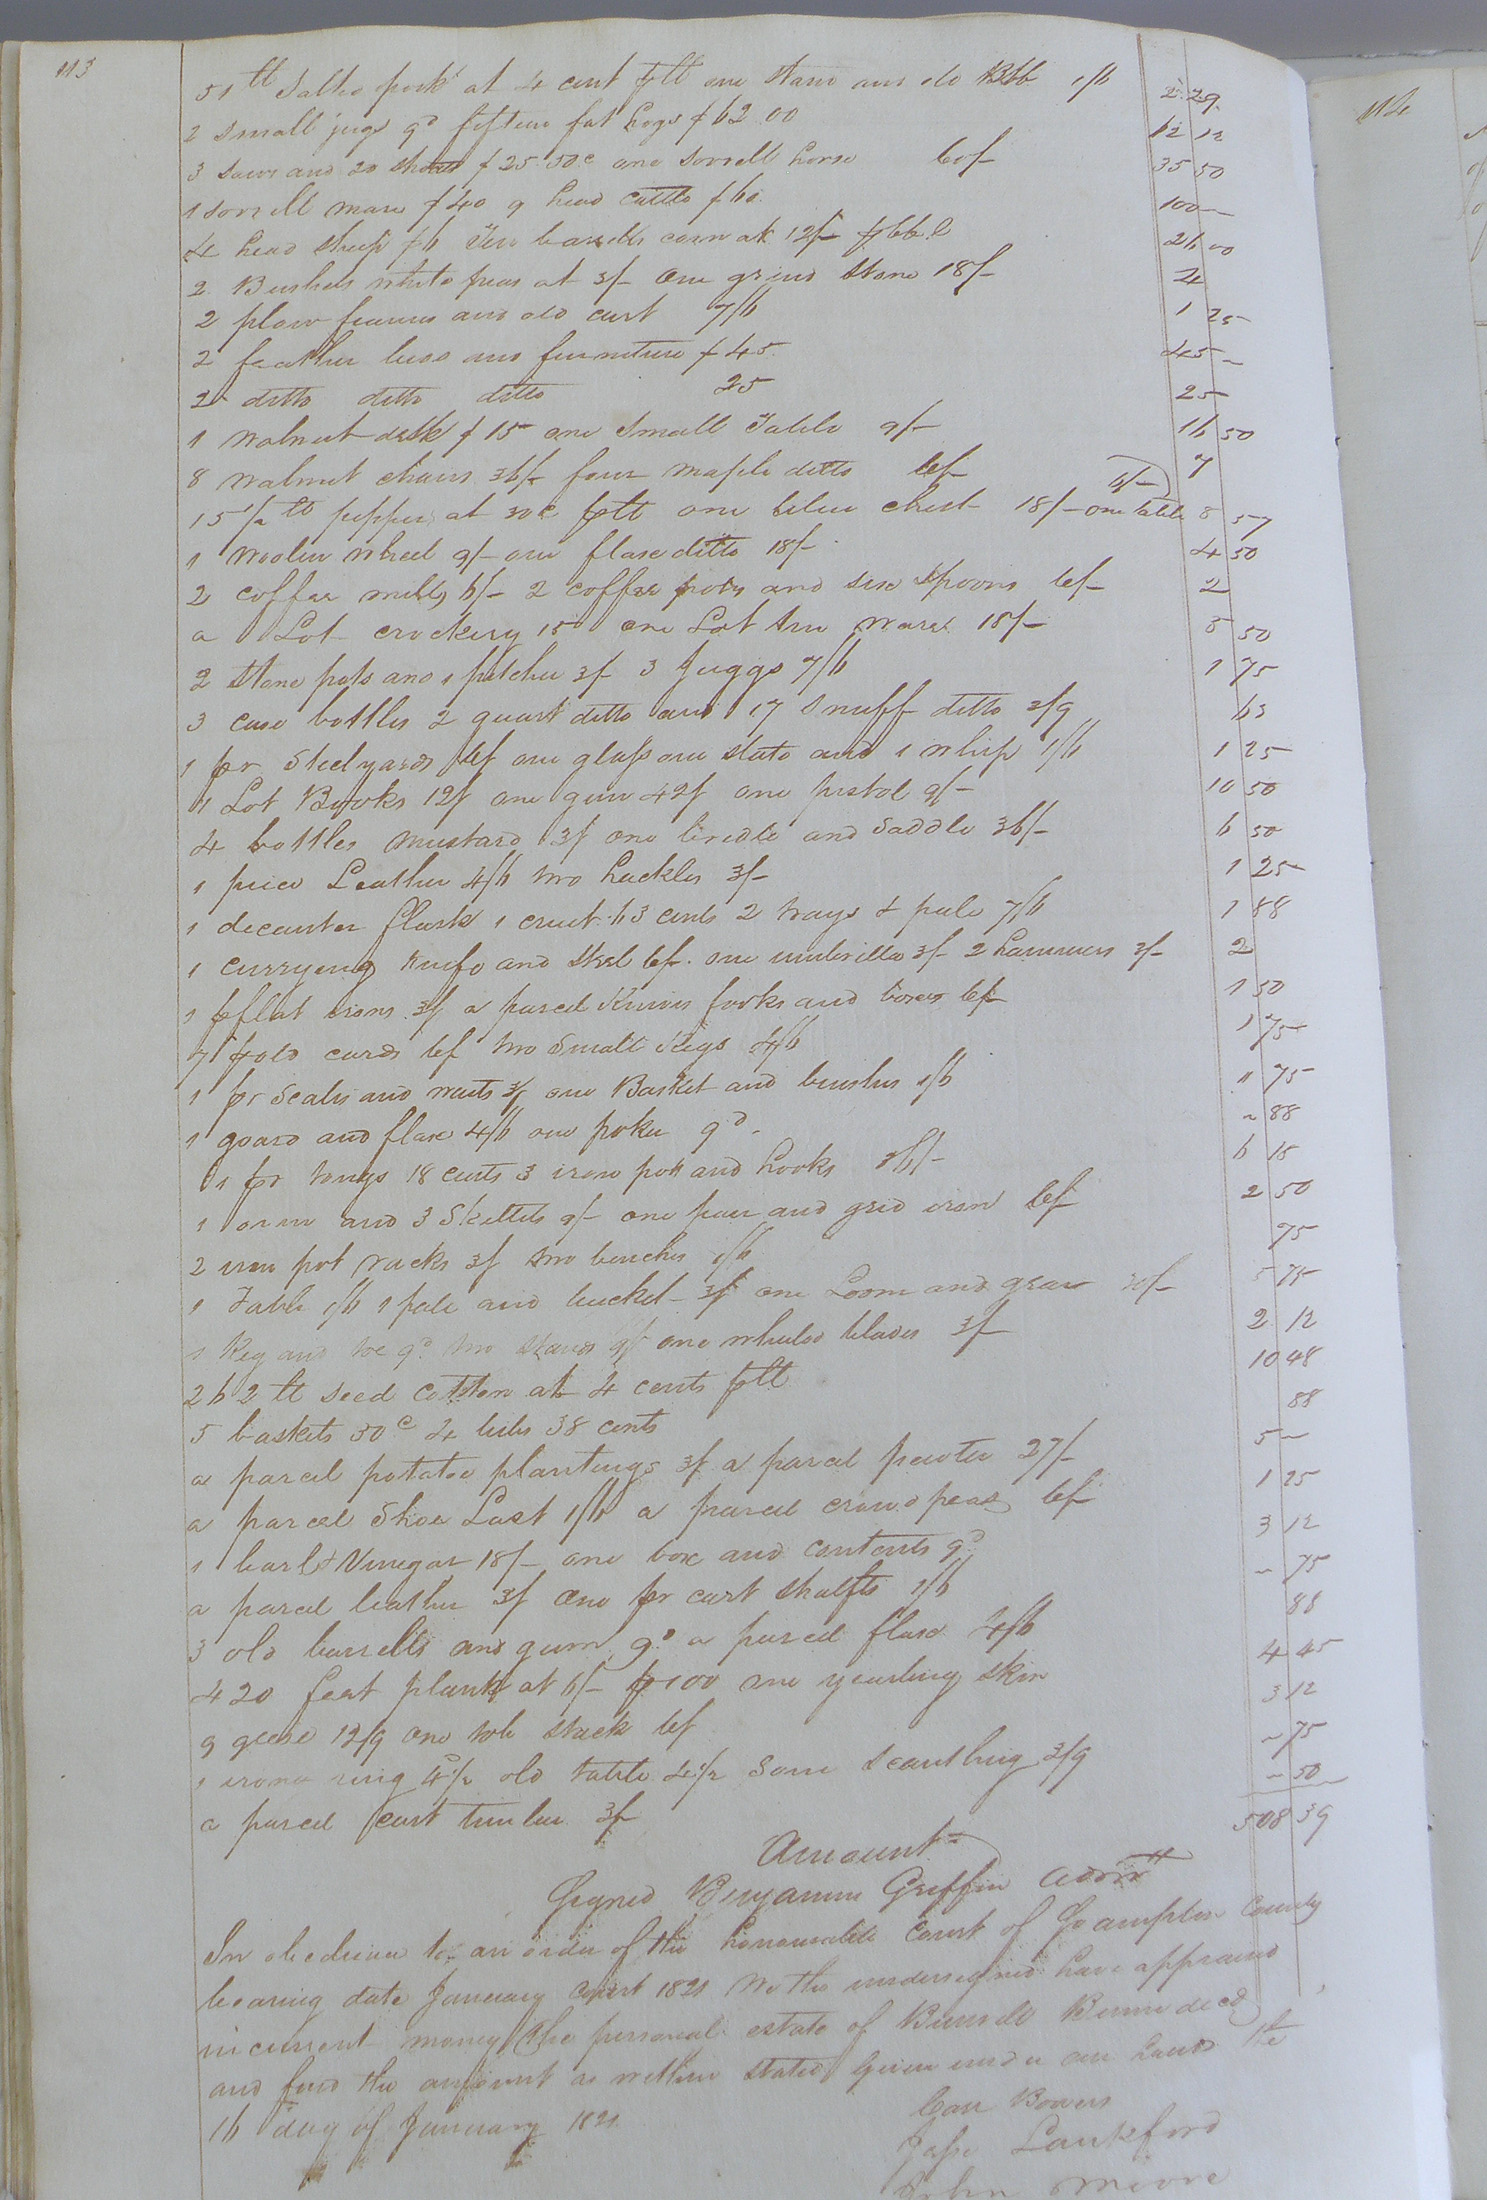 113
51 lb Salted pork at 4 cent p lb one stand and do 1/6 2 29
2 small jugs 9d fifteen fat hogs $62.00 62 12
3 sows and 20 shoats $25.50c one sorrell horse 60/- 35 50
1 sorrell mare $40 9 head cattle $60. 100 —
4 head sheep $6 Ten barrells corn at 12/- p bbl 26 00
2 Bushels white peas at 3/- One grind stone 18/- 4
2 plow frames and old cart 7/6 1 25
2 feather beds and furniture $45. 45 —
2 ditto ditto ditto 25 25
1 walnut desk $15 one Small Table 9/- 16 50
8 walnut chairs 36/- four maple ditto 6/- 7
15 1/2 lb pepper at 30c p lb one blue chest 18/- one table 6/- 8 57
1 woolen wheel 9/- one flax ditto 18/- 4 50
2 coffee mills 6/- 2 coffee pots and six spoons 6/- 2
a Lot crockery 15/ one Lot tin ware 18/- 5 50
2 stone pots and 1 pitcher 3/ 3 Juggs 7/6 1 75
3 case bottles 2 quart ditto and 17 snuff ditto 3/9 63
1 pr Steelyards 6/ one glass one slate and 1 whip 1/6 1 25
1 Lot Books 12/ one gun 42/ one pistol 9/- 10 50
4 bottles mustard 3/ one bridle and saddle 36/- 6 50
1 piece Leather 4/6 two hackles 3/- 1 25
1 decanter flask 1 cruet 63 cents 2 trays & pale 7/6 1 88
1 currying knife and steel 6/- one umbrilla 3/- 2 hammers 3/- 2
1 p flat irons 3/ a parcel knives forks and boxes 6/- 1 50
7 p old cards 6/ two small Kegs 4/6 1 75
1 pr Scales and waits 3/ one Basket and brushes 1/6 " 75
1 goard and flax 4/6 one poker 9d. ~ 88
1 pr tongs 18 cents 3 iron pots and hooks 36/- 6 18
1 oven and 3 Skillets 9/- one pan and grid iron 6/ 2 50
2 iron pot racks 3/ two benches 1/6 75
1 Table 1/6 1 pale and bucket 3/ one Loom and gear 30/- 5 75
1 Keg and hoe 9d two stands 9/ one wheeled blades 3/ 2 12
262 lb seed cotton at 4 cents p lb 10 48
5 baskets 50c 4 tubs 38 cents 88
a parcel potatoe plantings 3/ a parcel pewter 27/- 5 ~
a parcel Shoe Last 1/6 a parcel crowd peas 6/- 1 25
1 barl & Vinegar 18/- one box and contents 9d 3 12
a parcel leather 3/ one pr cart shafts 1/6 ~ 75
3 old barrells and gum 9d a parcel flax 4/6 88
420 feet plank at 6/- p 100 one yearling skin 4 45
9 geese 12/9 one tob stack 6/ 3 12
1 irone ring 4d 1/2 old table 4 1/2 some scantling 3/9 ~ 75
a parcel cart timber 3/ ~ 50
Amount 508 39
Signed Benjamin Griffin admr
In obedience to an order of the honourable Court of Southampton County
bearing date January court 1821 We the undersigned have appraised
in current money the personal estate of decd
and find the amount as within stated Given under our hands the
16 day of January 1821
Carr Bowers
Jesse Lankford
John Moore